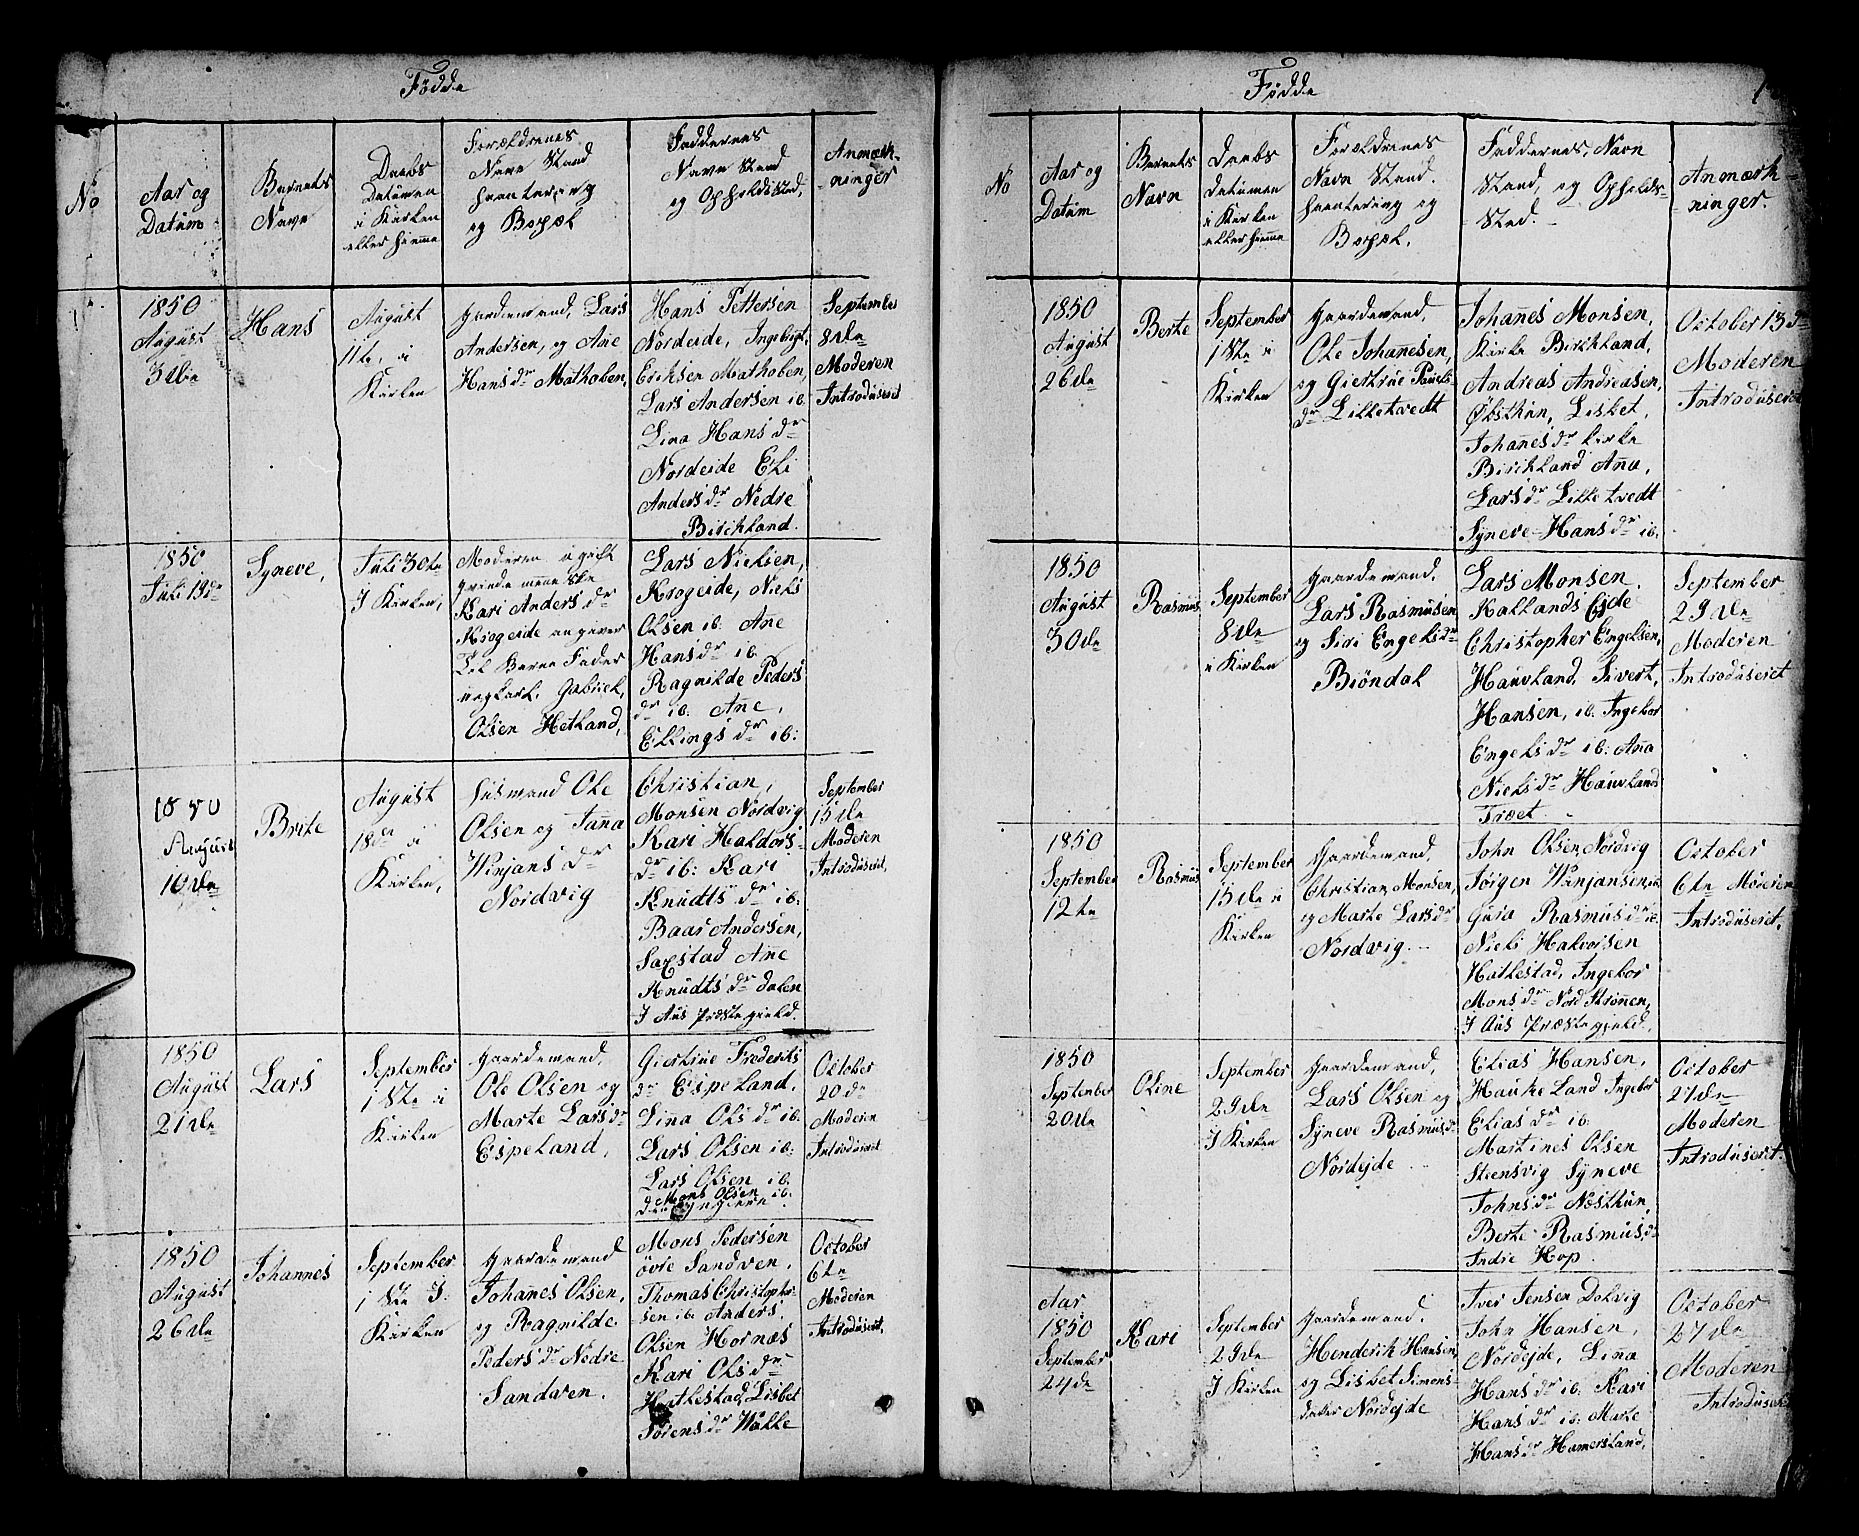 Fødde
No
Aar og
Datum
Barnets
Navn
Daabs
Datumen
i Kirken
eller hiemme
Forældrenes
Navn Stand
haantering
og Bopæl
Faddernes
Navn Stand
og Opholdssted
Anmærk-
-ninger
1850
August
3die
Hans
August
11te i
Kirken
Gardemand, Lars
Andersen, og Ane
Hans dr Mathoben,
Hans Pettersen
Nordeide, Ingebrigt,
Eriksen Mathoben,
Lars Andersen ib.
Lina Hans dr
Nordeide Eli
Anders dr Nedre
Birchland.
September
8de
Moderen
Introduseret
1850
Juli 19de
Syneve,
Juli 30te
I Kirken,
Moderen ugift
qvindemenneske
Kari Anders dr
Krogeide angiver
Til Barne Fader
ungkarl, Gabriel,
Olsen Hetland,
Lars Nielsen,
Krogeide, Niels
Olsen ib. Ane
Hans dr ib.
Ragnilde Peders
dr ib. Ane,
Ellings dr ib:
1850
August
10de
Brite
August
18de i
Kirken,
Husmand Ole
Olsen og Janna
Winjans dr
Nordvig
Christian,
Monsen Nordvig
Kari Haldors-
dr ib: Kari
Knudts dr ib:
Baar Andersen,
Saxstad Ane
Knudts dr dalen
I Aus Præstegield.
September
15de
Moderen
Introduseret,
1850
August
21de
Lars
September
1ste i
Kirken
Gaardemand,
Ole Olsen og
Marte Lars dr
Espeland,
Giertrue Frederiks
dr Espeland,
Lina Ols dr ib:
Lars Olsen ib:
Lars Olsen ib.
Mons Olsen ib.
den yngerre.
October
20de
Moderen
Introduseret
1850
August
26de
Johannes
September
1ste I
Kirken
Gaardemand
Johanes Olsen,
og Ragnilde
Peders dr Nedre
Sandven.
Mons Pedersen
øvre Sandven,
Thomas Christopher-
sen ib. Anders,
Olsen Hornæs
Kari Ols dr
Hatlestad, Lisbet
Sørens dr Walle
October
6te
Moderen
Introduseret,
Fødde
No
Aar og
Datum
Barnets
Navn
Daabs
Datumen
i Kirken
eller hiemme
Forældrenes
Navn Stand.
haantering og
Bopæl.
Faddernes, Navn
Stand, og Opholds-
Sted.
Anmærk-
-ninger.
1850
August
26de
Berte
September
1ste i
Kirken
Gaardemand,
Ole Johanesen,
og Giertrue Pauels
dr Lilletvedt
Johanes Monsen,
Kirke Birchland,
Andreas Andreasen,
Øksthun, Lisbet,
Johanes dr kirke
Birchland Ana,
Lars dr Lilletvedt
Syneve Hans dr ib.
October 13de
Moderen
Introduseret
1850
August
30de
Rasmus
September
8de
i Kirken
Gaardemand,
Lars Rasmusen
og Siri Engels dr
Biöndal
Lars Monsen,
Kallands Ejde
Christopher Engelsen,
Hauvland, Sivert,
Hansen, ib. Ingebor
Engels dr ib: Ana
Niels dr Hauvlands
Træet.
September
29de
Moderen
Introduseret
1850
September
12te
Rasmus
September
15de i
Kirken
Gaardemand,
Christian Monsen,
og Marte Lars dr
Nordvig
John Olsen, Nordvig
Jørgen Winjansen, ib.
Gura Rasmus dr ib.
Nieli Halvorsen
Hatlestad, Ingebor
Mons dr Nord Strönen,
I Aus Præstegield,
October
6te Moderen
Introduseret.
1850
September
20de
Oline
September
29de
I Kirken
Gaardemand,
Lars Olsen og
Syneve Rasmus dr
Nordejde
Elias Hansen,
Haukeland Ingebor
Elias dr ib.
Martines Olsen
Steensvig Syneve
Johns dr Næsthun,
Berte Rasmus dr
Indre Hop.
October
27de
Moderen
Introduseret.
Aar
1850
September
24de
Kari
September
29de
I Kirken
Gaardemand,
Henderik Hansen,
og Lisbet Simons-
datter Nordejde
Iver Jensen Dolvig
John Hansen,
Nordejde, Lina
Hans dr ib. Kari
Hans dr ib: Marte
Hans dr Hamersland,
October
27de
Moderen
Introduseret